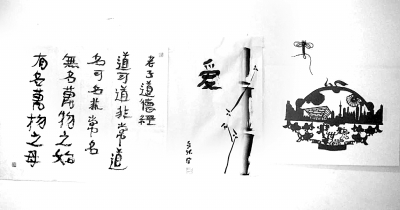 老子道德經
道可道非常道
名可名非常名
無名萬物之始
有名萬物之母
愛